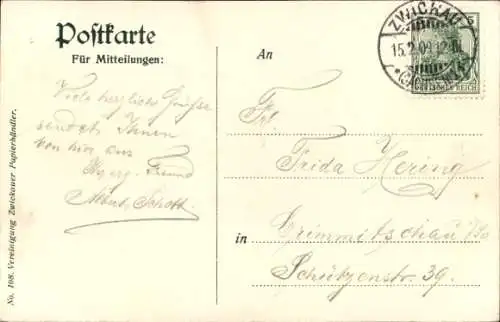 Postkarte
Für Mitteilungen:
Viele herzliche Grüße
sendet Ihnen
von hier aus
Freund
Albert Schott
An
Frl.
Frida Hering
in Crimmitschau i/Sa
Schützenstr. 39.
ZWICKAU
15.2.09.12
5
DEUTSCHES REICH
No. 108. Vereinigung Zwickauer Papierhändler.